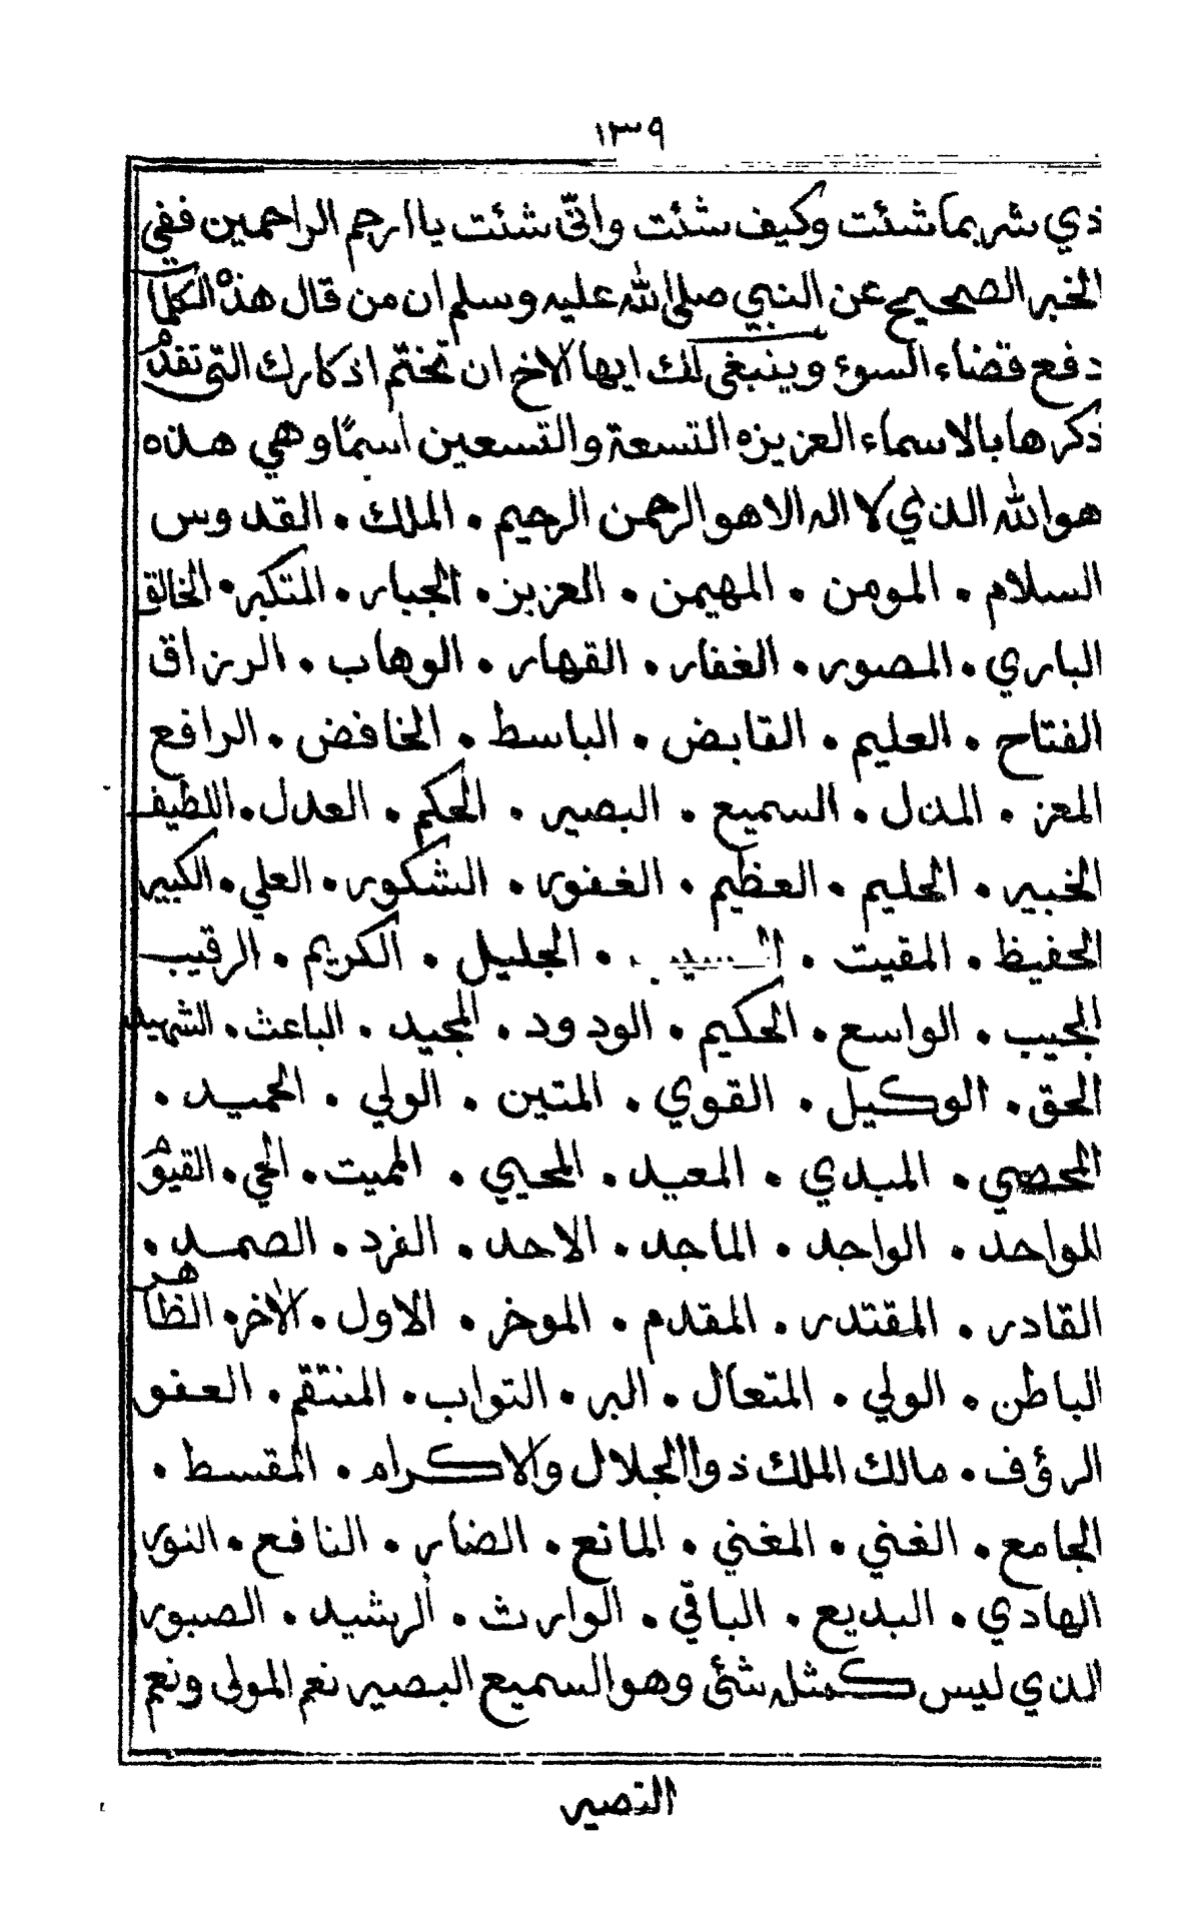 ١٣٩
ذي شر بما شئت وكيف شئت واتى شئت يا ارحم الراحمين ففي
الخبر الصحيح عن النبي صلى الله عليه وسلم ان من قال هذه الكلمات
دفع قضاء السوء وينبغي لك ايها الاخ ان تختم اذكارك التى تقدم
ذكرها بالاسماء العزيزه التسعة والتسعين اسمًا وهي هذه
هو الله الذي لا اله الا هو الرحمن الرحيم • الملك • القدوس
السلام • المومن • المهيمن • العزيز • الجبار • المتكبر • الخالق
الباري • المصور • الغفار • القهار • الوهاب • الرزاق
الفتاح • العليم • القابض • الباسط • الخافض • الرافع
المعز • المذل • السميع • البصير • الحكم • العدل • اللطيف
الخبير • الحليم • العظيم • الغفور • الشكور • العلي • الكبير
الحفيظ • المقيت • • الجليل • الكريم • الرقيب
المجيب • الواسع • الحكيم • الودود • المجيد • الباعث • الشهيد
الحق • الوكيل • القوي • المتين • الولي • الحميد •
المحصي • المبدي • المعيد • المحيي • المميت • الحي • القيوم
الواحد • الواجد • الماجد • الاحد • الفرد • الصمد •
القادر • المقتدر • المقدم • الموخر • الاول • الاخر • الظاهر
الباطن • الولي • المتعال • البر • التواب • المنتقم • العفو
الرؤف • مالك الملك ذو االجلال والاكرام • المقسط •
الجامع • الغني • المغني • المانع • الضار • النافع • النور
الهادي • البديع • الباقي • الوارث • الرشيد • الصبور
الذي ليس كمثله شئ وهو السميع البصير نعم المولى ونعم
النصير